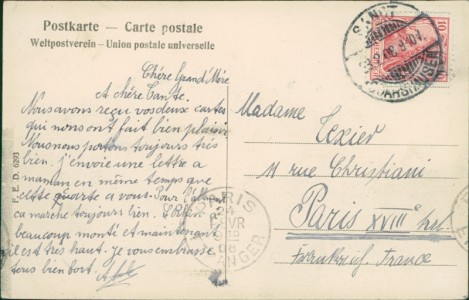 Postkarte — Carte postale
Weltpostverein – Union postale universelle
Chère Grand'Mère
et chère Tante.
Nous avons reçu vos deux cartes
qui nous ont fait bien plaisir
Nous nous portons toujours très
bien. J'envoie une lettre a
maman en même temps que
cette carte a vous. Pour
ca marche toujours bien.
beaucoup monté et maintenant
il est très haut. Je vous embrasse
tous bien fort.
F. E. D. 6293
SANKT
GOARSHAUSEN
10
PARIS
ETRANGER
Madame
Texier
11 rue Christiani
Paris XVIIIe
Frankreich. France